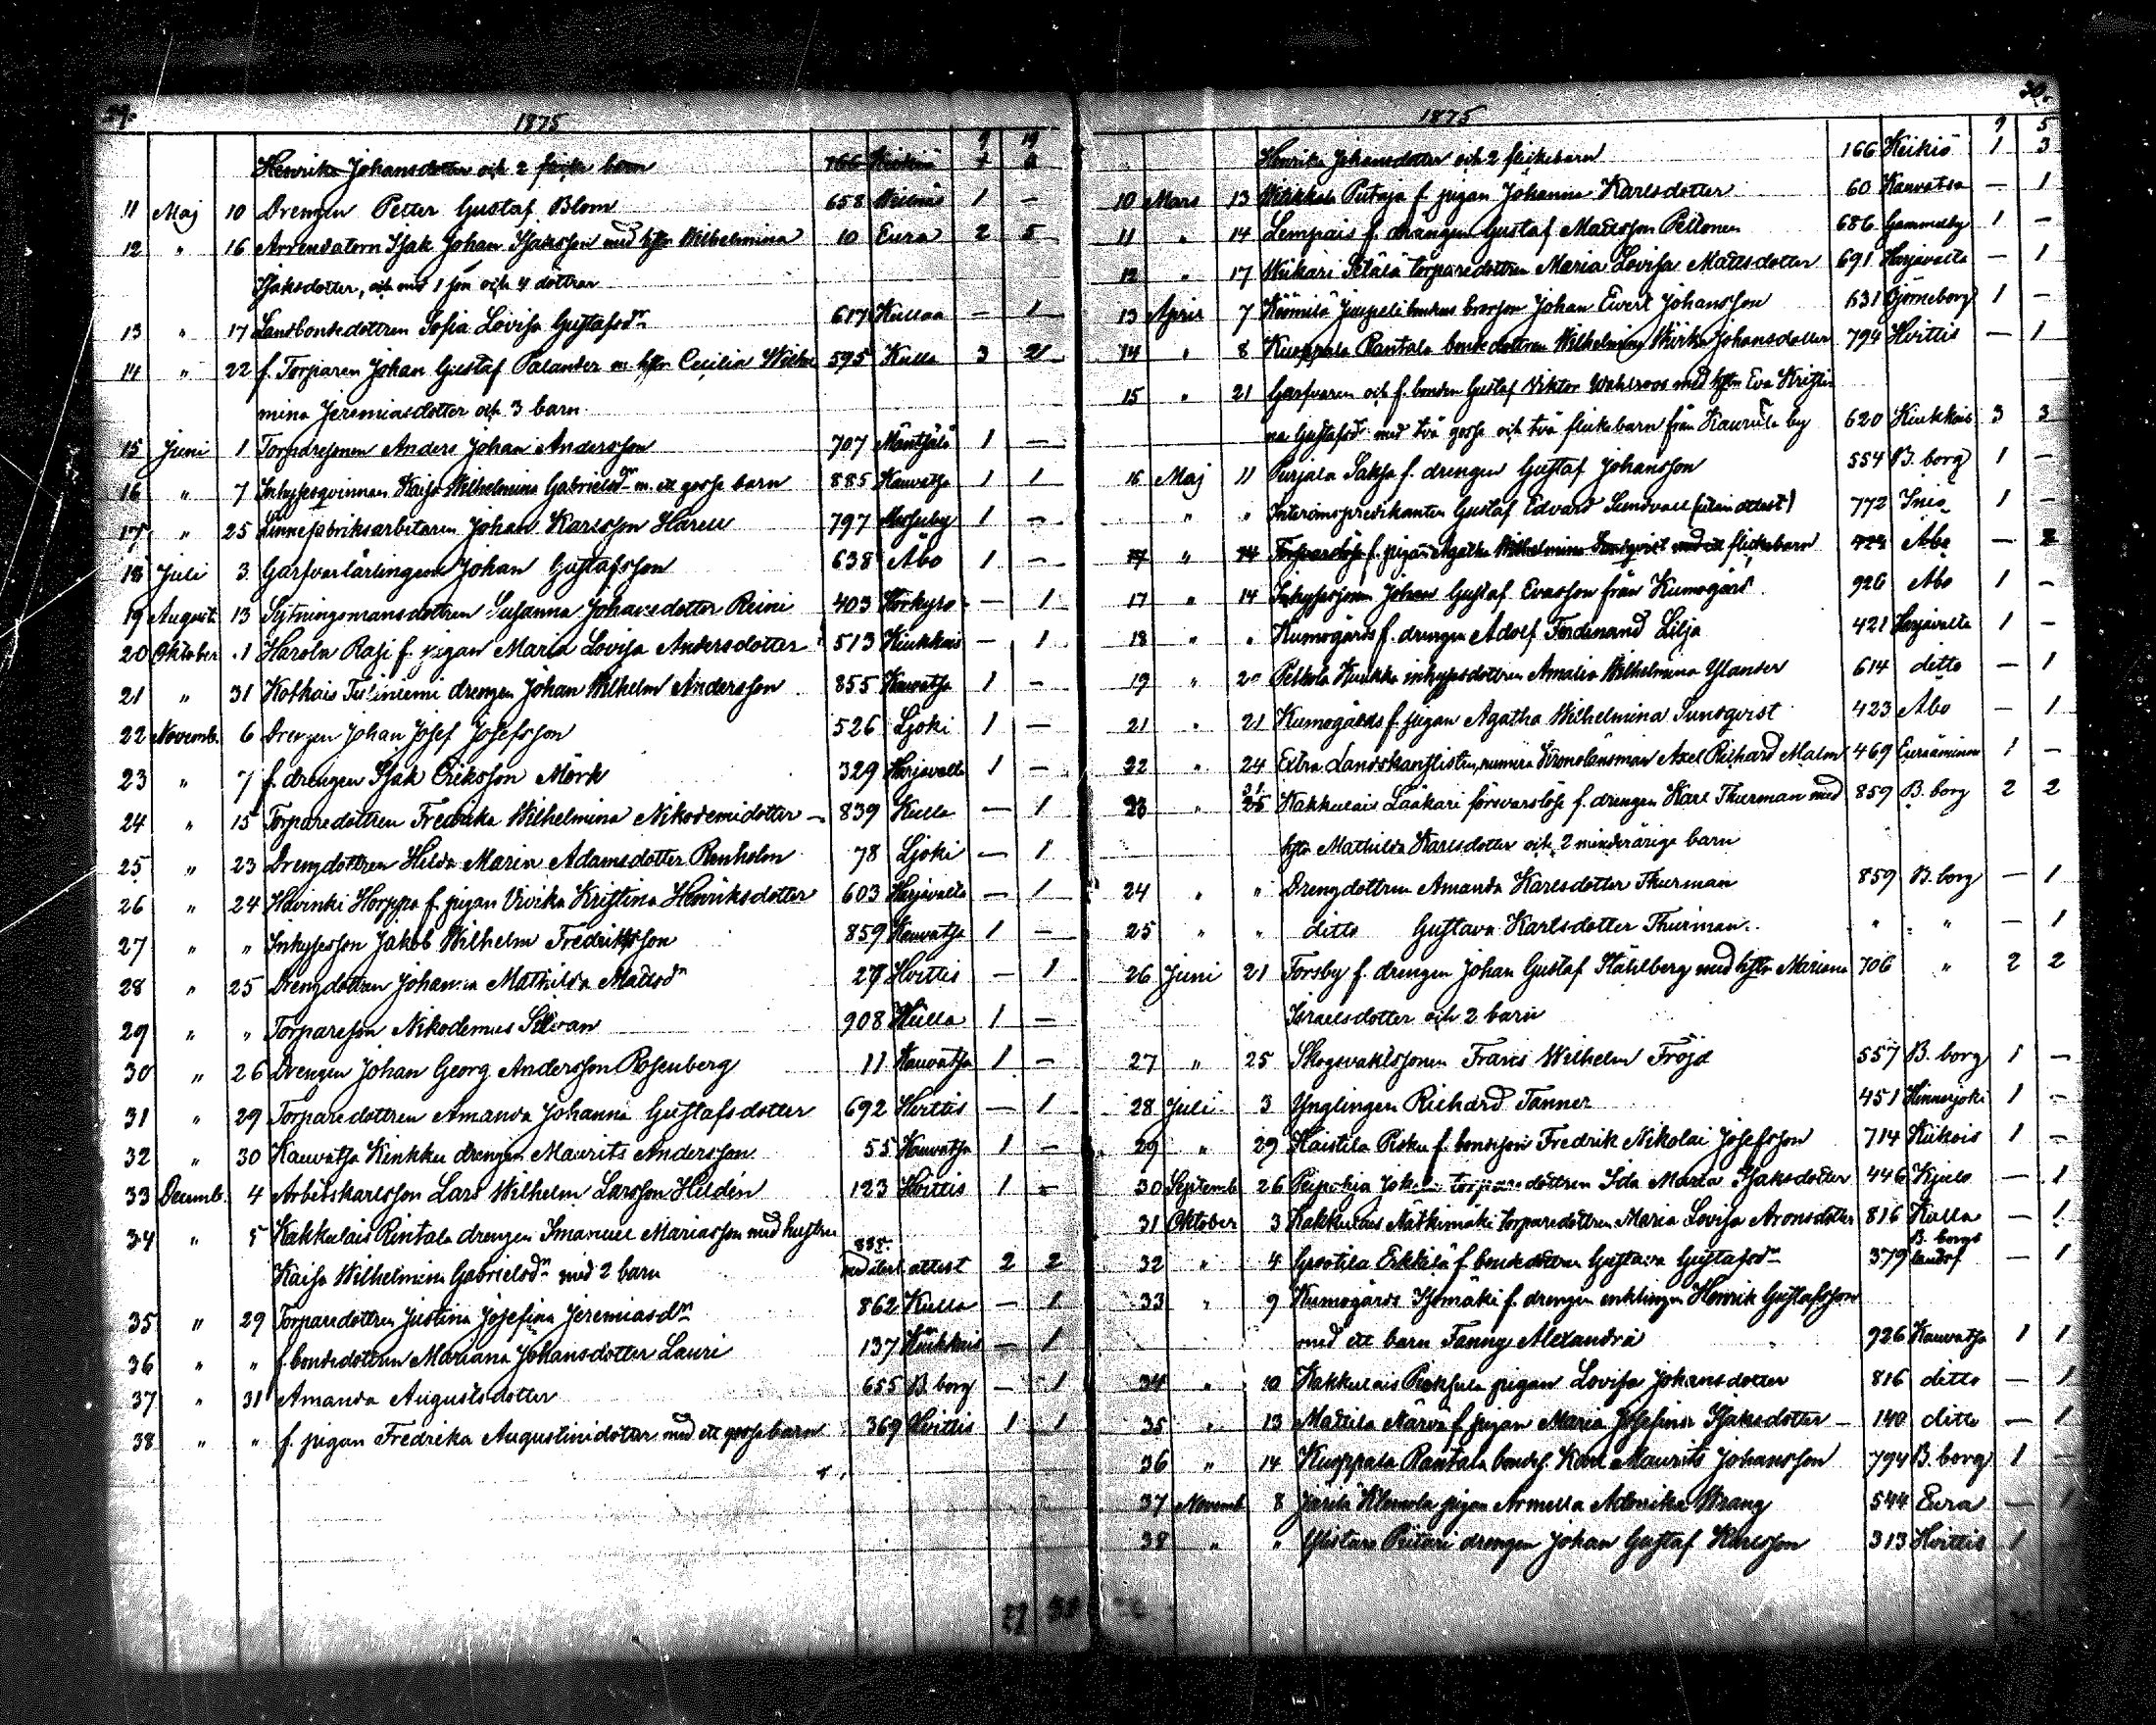 29.
1875
9 19
Henrika Johansdotter och 2 flicke barn 166 Keikiö
11 Maj 10 Drengen Petter Gustaf Blom 658 1 —
12 " 16 Arrendatorn Isak Johan Isaksson med hstr Wilhelmina 10 Eura 2 5
Isaksdotter, och med 1 son och 4 döttrar
13 " 17 Landbondedottren Sofia Lovisa Gustafsdr 617 Kullaa — 1
14 " 22 f. Torparen Johan Gustaf Palander m. hstr Cecilia Wilhel 595 Kulla 3 2
mina Jeremiasdotter och 3 barn
15 Juni 1 Torparesonen Anders Johan Andersson 707 Mäntsälä 1 —
16 " 7 Inhysesqvinnan Kaisa Wilhelmina Gabrielsdr m. ett gosse barn 885 Kauvatsa 1 1
17 " 25 Linnefabriksarbetaren Johan Karlsson Harell 797 Moschuby 1 —
18 Juli 3 Garfvarlärlingen Johan Gustafsson 638 Åbo 1 —
19 Augusti 13 Sytningsmansdottren Susanna Johansdotter Reini 403 Storkyro — 1
20 Oktober 1 Harola Rasi f. pigan Maria Lovisa Andersdotter 513 Kiukkais — 1
21 " 31 Kothais Tuliniemi drengen Johan Wilhelm Andersson 855 Kauvatsa 1 —
22 Novemb. 6 Drengen Johan Josef Josefsson 526 Ljoki 1 —
23 " 7 f. drengen Isak Eriksson Mörk 329 Harjavalta 1 —
24 " 15 Torparedottren Fredrika Wilhelmina Nikodemidotter 839 Kulla — 1
25 " 23 Drengdottren Hilda Maria Adamsdotter Renholm 78 Ljoki — 1
26 " 24 Havinki Horppa f. pigan Vivika Kristina Henriksdotter 603 Harjavalta — 1
27 " " Inhyseson Jakob Wilhelm Fredriksson 859 Kauvatsa 1 —
28 " 25 Drengdottren Johanna Mathilda Mattsdr 27 Hvittis — 1
29 " " Torpareson Nikodemus Silvan 908 Kulla 1 —
30 " 26 Drengen Johan Georg Andersson Rosenberg 11 Kauvatsa 1 —
31 " 29 Torparedottren Amanda Johanna Gustafsdotter 692 Hvittis — 1
32 " 30 Kauvatsa Kinkku drengen Maurits Andersson 55 Kauvatsa 1 —
33 Decemb. 4 Arbetskarlsson Lars Wilhelm Larsson Hildén 123 Hvittis 1 —
34 " 5 Kakkulais Rintala drengen Imanuel Mariasson med hustru
885.
Kaisa Wilhelmina Gabrielsdr med 2 barn med återl. attest 2 2
35 " 29 Torparedottren Justina Josefina Jeremiasdr 862 Kulla — 1
36 " " f. bondedottren Mariana Johansdotter Lauri 137 Kiukkais — 1
37 " 31 Amanda Augustsdotter 655 B. borg — 1
38 " " f. pigan Fredrika Augustinidotter med ett gossebarn 369 Hvittis 1 1
30.
1875
9 5
Henrika Johansdotter och 2 flickebarn 166 Keikiö 1 3
10 Mars 13 Putaja f. pigan Johanna Karlsdotter 60 Kauvatsa — 1
11 " 14 Lempais f. drängen Gustaf Mattsson Peltonen 686 Gammelby 1 —
12 " 17 Wiikari Sätälä torparedottren Maria Lovisa Mattsdotter 691 Harjavalta — 1
13 April 7 Köömilä Juupeli bondens brorson Johan Evert Johansson 631 Björneborg 1 —
14 " 8 Kuoppala Rantala bondedottren Wilhelmina Wirka Johansdotter 794 Hvittis — 1
15 " 21 Garfvaren och f. bonden Gustaf Viktor Wahlroos med hstr Eva Kristi
na Gustafsdr med två gosse och två flickebarn från Kaurula by 620 Kiukkais 3 3
16 Maj 11 Purjala Saksa f. drengen Gustaf Johansson 554 B. borg 1 —
" " Interimspredikanten Gustaf Edvard Sundvall (utan attest) 772 Inio 1 —
17 " 14 f. pigan Agatha Wilhelmina Sundqvist med ett flickebarn 423 Åbo — 2
17 " 14 Inhysesonen Johan Gustaf Evasson från Kumogård 926 Åbo 1 —
18 " " Kumogårds f. drengen Adolf Ferdinand Lilja 421 Harjavalta 1 —
19 " 20 Pelhola Kuukka inhysesdottren Amalia Wilhelmina Ylander 614 ditto — 1
21 " 21 Kumogårds f. pigan Agatha Wilhelmina Sundqvist 423 Åbo — 1
22 " 24 Extra Landskanslisten, numera Kronolänsman Axel Richard Malm 469 Euraåminne 1 —
23 " 25 Kakkulais Lääkari försvarslöse f. drengen Karl Thurman med 859 B. borg 2 2
hstr Mathilda Karlsdotter och 2 minderårige barn
24 " " Drengdottren Amanda Karlsdotter Thurman 859 B. borg — 1
25 " " ditto Gustava Karlsdotter Thurman " " — 1
26 Juni 21 Torsby f. drengen Johan Gustaf Ståhlberg med hstr Mariana 706 " 2 2
Israelsdotter och 2 barn
27 " 25 Skogsvaktssonen Frans Wilhelm Fröjd 557 B. borg 1 —
28 Juli 3 Ynglingen Richard Tanner 451 Hinnerjoki 1 —
29 " 29 Haistila Pisku f. bondeson Fredrik Nikolai Josefsson 714 Kiikois 1 —
30 Septemb 26 Peipohja torparedottren Ida Maria Isaksdotter 446 Kjulo — 1
31 Oktober 3 Kakkulais Nätkimäki torparedottren Maria Lovisa Aronsdotter 816 Kulla — 1
B. borgs
32 " 4 Grootila Erkkilä f. bondedottren Gustava Gustafsdr 379 landsf — 1
33 " 9 Kumogårds Isomäki f. drengen enklingen Henrik Gustafsson
med ett barn Fanny Alexandra 926 Kauvatsa 1 1
34 " 10 Kakkulais pigan Lovisa Johansdotter 816 ditto — 1
35 " 13 Mattila Närvä f. pigan Maria Josefina Isaksdotter 140 ditto — 1
36 " 14 Kuoppala Rantala bondes. Karl Maurits Johansson 794 B. borg 1 —
37 Novemb 8 Järilä Klemola pigan Armella Adonika Wrang 544 Eura — 1
38 " " Ylistaro Piitari drengen Johan Gustaf Karlsson 313 Hvittis 1